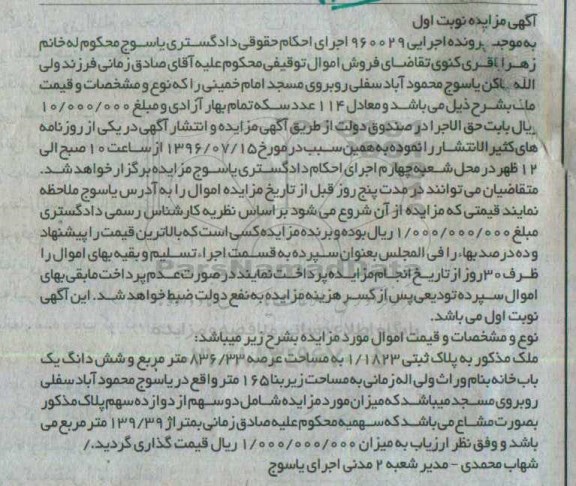 آگهی مزایده نوبت اول
به موجب پرونده اجرایی ۹۶۰۰۲۹ اجرای احکام حقوقی دادگستری یاسوج محکوم له خانم
زهرا باقری کنوی تقاضای فروش اموال توقیفی محکوم علیه آقای صادق زمانی فرزند ولی
الله ساکن یاسوج محمود آباد سفلی روبروی مسجد امام خمینی را که نوع و مشخصات و قیمت
ملک بشرح ذیل می باشد و معادل ۱۱۴ عدد سکه تمام بهار آزادی و مبلغ ۱۰/۰۰۰/۰۰۰
ریال بابت حق الاجرا در صندوق دولت از طریق آگهی مزایده و انتشار آگهی در یکی از روزنامه
های کثیر الانتشار را نموده به همین سبب در مورخ ۱۳۹۶/۰۷/۱۵ از ساعت ۱۰ صبح الی
۱۲ ظهر در محل شعبه چهارم اجرای احکام دادگستری یاسوج مزایده برگزار خواهد شد.
متقاضیان می توانند در مدت پنج روز قبل از تاریخ مزایده اموال را به آدرس یاسوج ملاحظه
نمایند قیمتی که مزایده از آن شروع می شود بر اساس نظریه کارشناس رسمی دادگستری
مبلغ ۱/۰۰۰/۰۰۰/۰۰۰ ریال بوده و برنده مزایده کسی است که بالاترین قیمت را پیشنهاد
و ده درصد بهاء را فی المجلس بعنوان سپرده به قسمت اجراء تسلیم و بقیه بهای اموال را
ظرف ۳۰ روز از تاریخ انجام مزایده پرداخت نمایند. در صورت عدم پرداخت مابقی بهای
اموال سپرده تودیعی پس از کسر هزینه مزایده به نفع دولت ضبط خواهد شد. این آگهی
نوبت اول می باشد.
نوع و مشخصات و قیمت اموال مورد مزایده بشرح زیر میباشد:
ملک مذکور به پلاک ثبتی ۱/۱۸۲۳ به مساحت عرصه ۸۳۶/۳۳ متر مربع و شش دانگ یک
باب خانه بنام وراث ولی اله زمانی به مساحت زیر بنا ۱۶۵ متر واقع در یاسوج محمود آباد سفلی
روبروی مسجد میباشد که میزان مورد مزایده شامل دو سهم از دوازده سهم پلاک مذکور
بصورت مشاع می باشد که سهمیه محکوم علیه صادق زمانی بمتراژ ۱۳۹/۳۹ متر مربع می
باشد و وفق نظر ارزیاب به میزان ۱/۰۰۰/۰۰۰/۰۰۰ ریال قیمت گذاری گردید./
شهاب محمدی - مدیر شعبه ۲ مدنی اجرای یاسوج